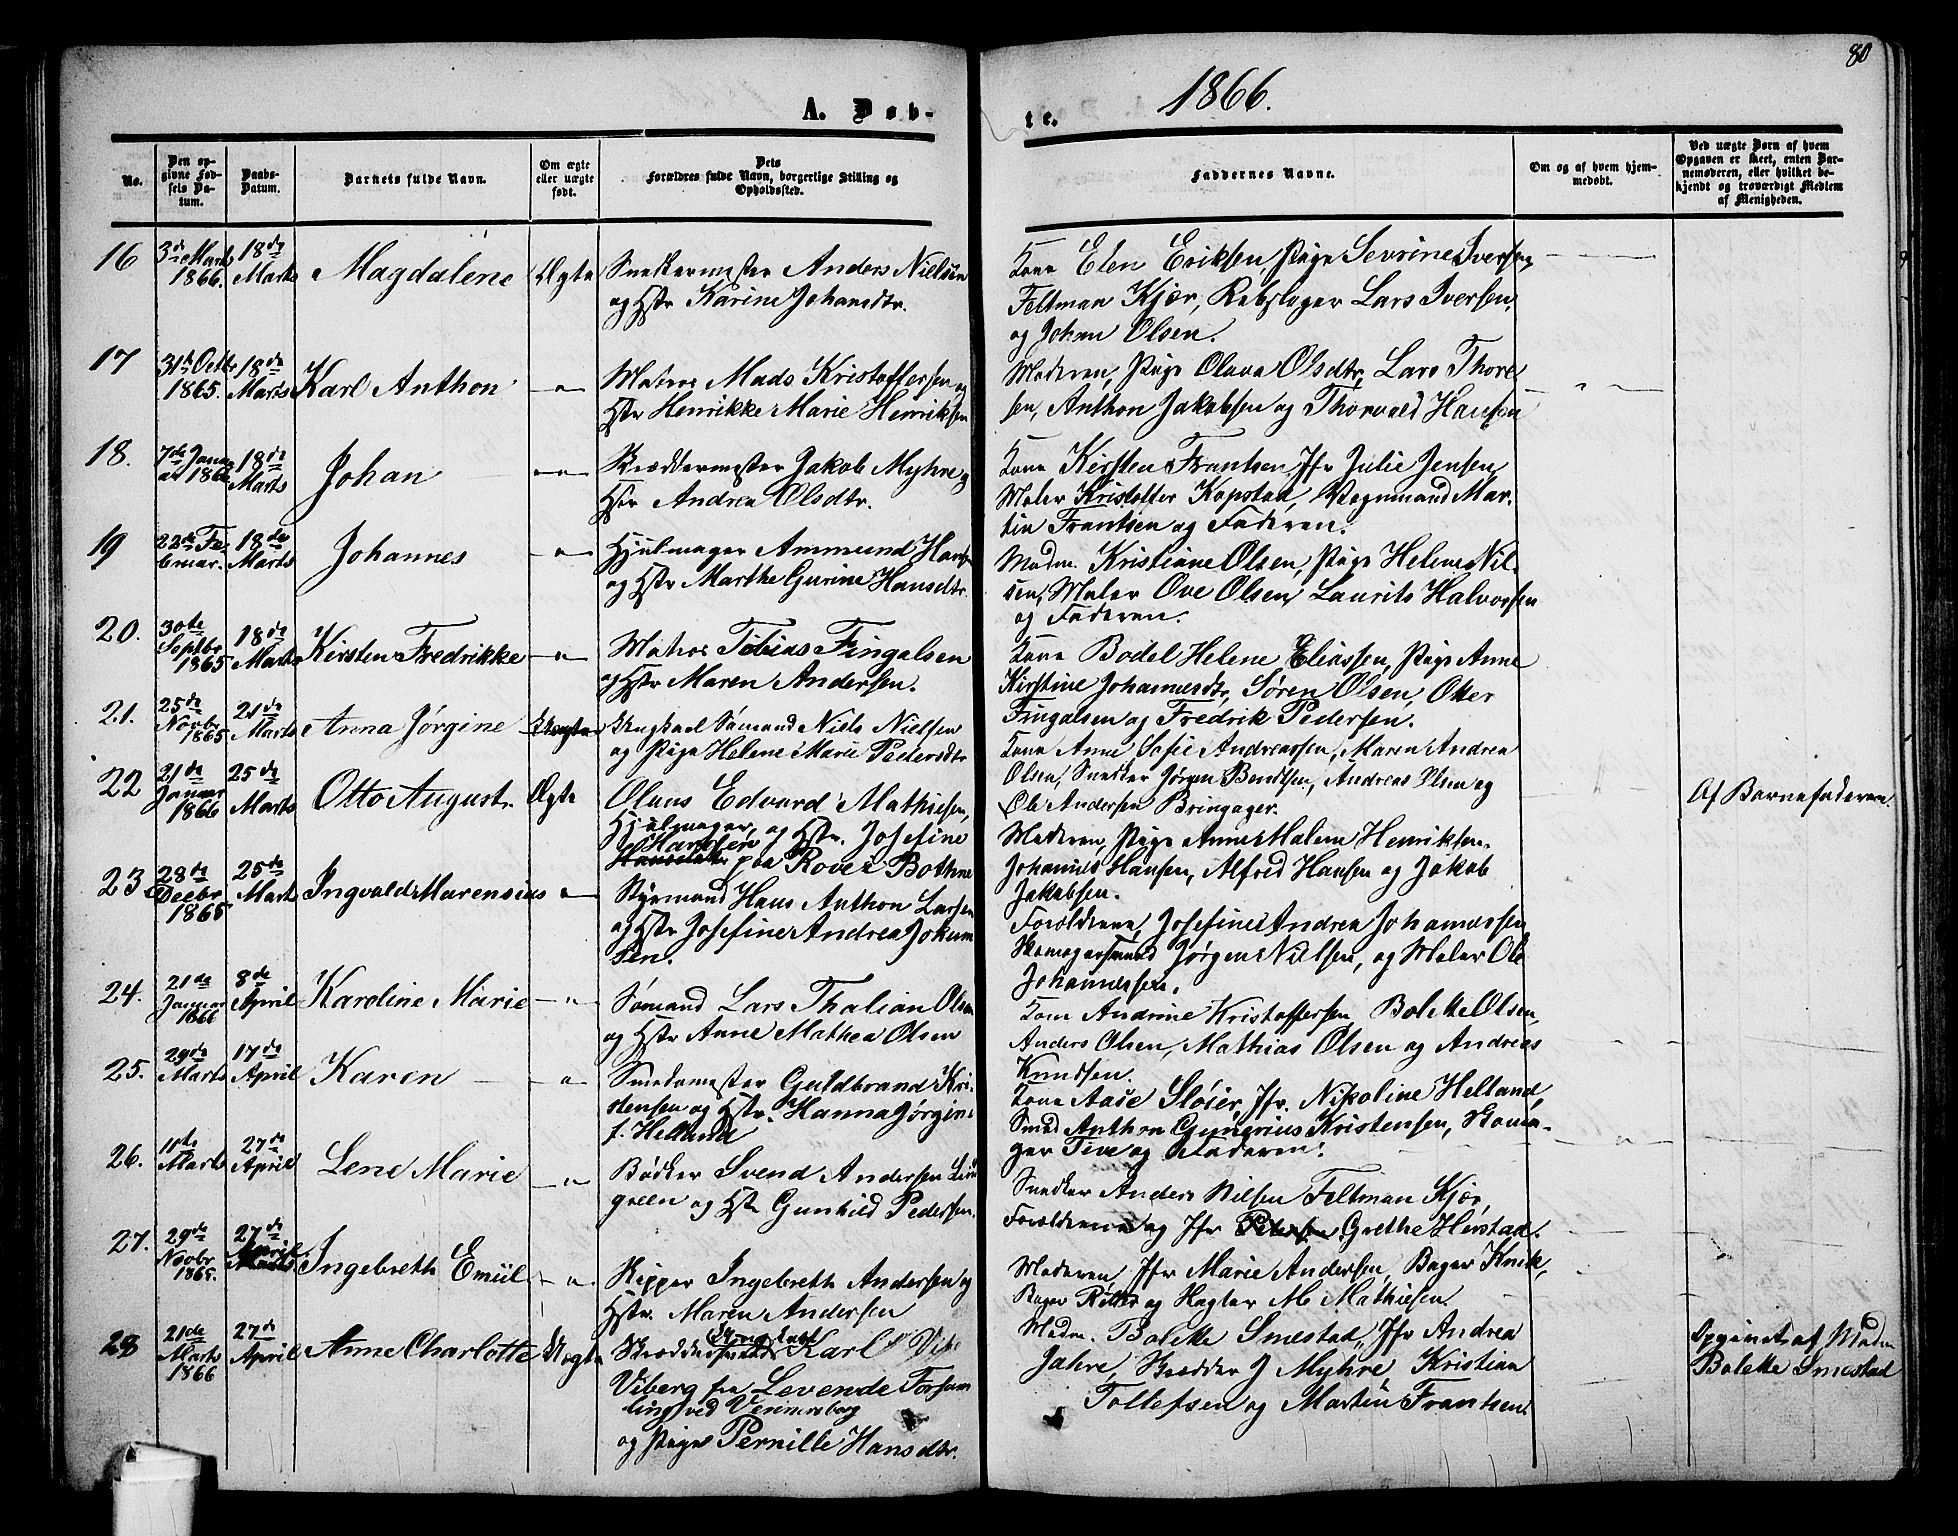 80
1866.
A. Døb-
te.
No.
Den op-
givne Fød-
sels Da-
tum.
Daabs-
Datum.
Barnets fulde Navn.
Om ægte
eller uægte
født.
Dets
Forældres fulde Navn, borgerlige Stilling og
Opholdssted.
Faddernes Navne.
Om og af hvem hjem-
medøbt.
Ved uægte Børn af hvem
Opgaven er skeet, enten Bar-
nemoderen, eller hvilket be-
kjendt og troværdigt Medlem
af Menigheden.
16
3de Marts
1866.
18de
Marts
Magdalene
Ægte
Snekkermester Anders Nielsen
og Hstr Karine Johansdtr.
Kone Elen Eriksen, Pige Sevrine Iversen,
Feltman Kjær, Rebslager Lars Iversen,
og Johan Olsen.
17
31te Octbr
1865.
18de
Marts
Karl Anthon
— " —
Matros Mads Kristoffersen og
Hstr Henrikke Marie Henriksen
Moderen, Pige Olava Olsdtr, Lars Thore
sen, Anthon Jakobsen og Thorvald Hansen
18.
7de Janu
ar 1866
18de
Marts
Johan
— " —
Skræddermester Jakob Myhre og
Hstr Andrea Olsdtr.
Kone Kirsten Frantsen, Jfr Julie Jensen,
Maler Kristoffer Kopstad, Vognmand Mar-
tin Frantsen og Faderen.
19
22de Fe
bruar.
18de
Marts
Johannes
— " —
Hjulmager Ammund Hans
og Hstr Marthe Gurine Hansdtr.
Madm. Kristiane Olsen, Pige Helene Nil-
sen, Maler Ove Olsen, Laurits Halvorsen
og Faderen.
20.
30te
Septbr
1865
18de
Marts
Kirsten Fredrikke
— " —
Matros Tobias Fingalsen
og Hstr Maren Andersen.
Kone Bodel Helene Eliassen, Pige Anne
Kirstine Johannesdtr, Søren Olsen, Otter
Fingalsen og Fredrik Pedersen.
21.
25de
Novbr
1865
21de
Marts
Anna Jørgine
Uægte
Ungkarl Sømand Niels Nielsen
og Pige Helene Marie Pedersdtr
Kone Anne Sofie Andreassen, Maren Andrea
Olsen, Snedker Jørgen Bendtsen, Andreas Olsen og
Ole Andersen Bringager.
Af Barnefaderen.
22
21de
Januar
1866
25de
Marts
Otto August.
Ægte
Olaus Edvard Mathiesen,
Hjulmager, og Hstr. Josefine
Hansen
paa Rove i Bothne
Moderen, Pige Anne Malene Henriksen.
Johannes Hansen, Alfred Hansen og Jakob
Jakobsen.
23
28de
Decbr
1865
25de
Marts
Ingvald Marensius
— " —
Styrmand Hans Anthon Larsen
og Hstr Josefine Andrea Jokum
sen.
Forældrene, Josefine Andrea Johannessen,
Skomagersvend Jørgen Nielsen, og Maler Ole
Johannessen.
24.
21de
Januar
1866
8de
April
Karoline Marie
— " —
Sømand Lars Thalian Olsen
og Hstr Anne Mathea Olsen
Kone Andrine Kristoffersen Bolette Olsen,
Anders Olsen, Mathias Olsen og Andreas
Knudsen.
25.
29de
Marts
17de
April
Karen
— " —
Smedemester Guldbrand Kri-
stensen og Hstr. Hanna Jørgine
f. Helland
Kone Aase Sløier, Jfr. Nikoline Helland,
Smed Anthon Gunerius Kristensen, Skoma-
ger Tive og Faderen.
26.
11te
Marts
27de
April
Lene Marie
— " —
Bødker Svend Andersen Lind
green og Hstr Gunhild Pedersen.
Snedker Anders Nilsen Feltman Kjær,
Forældrene og Jfr Grethe Hirstad.
27.
29de
Novbr
1865.
27de
April
Ingebreth Emiil
— " —
Skipper Ingebreth Andersen og
Hstr. Maren Andersen
Moderen, Jfr Marie Andersen, Bager Knik,
Bager og Hagter M Mathiesen.
28
21de
Marts
1866
27de
April
Anne Charlotte
Uægte
Ungkarl
Skræddersvend Karl
Viberg fra Levende Forsam
ling ved Vennersborg
og Pige Pernille Hansdtr.
Madm. Bolette Smestad, Jfr Andrea
Jahre, Skrædder J Myhre, Kristian
Tollefsen og Martin Frantsen.
Opgivet af Madm
Bolette Smestad